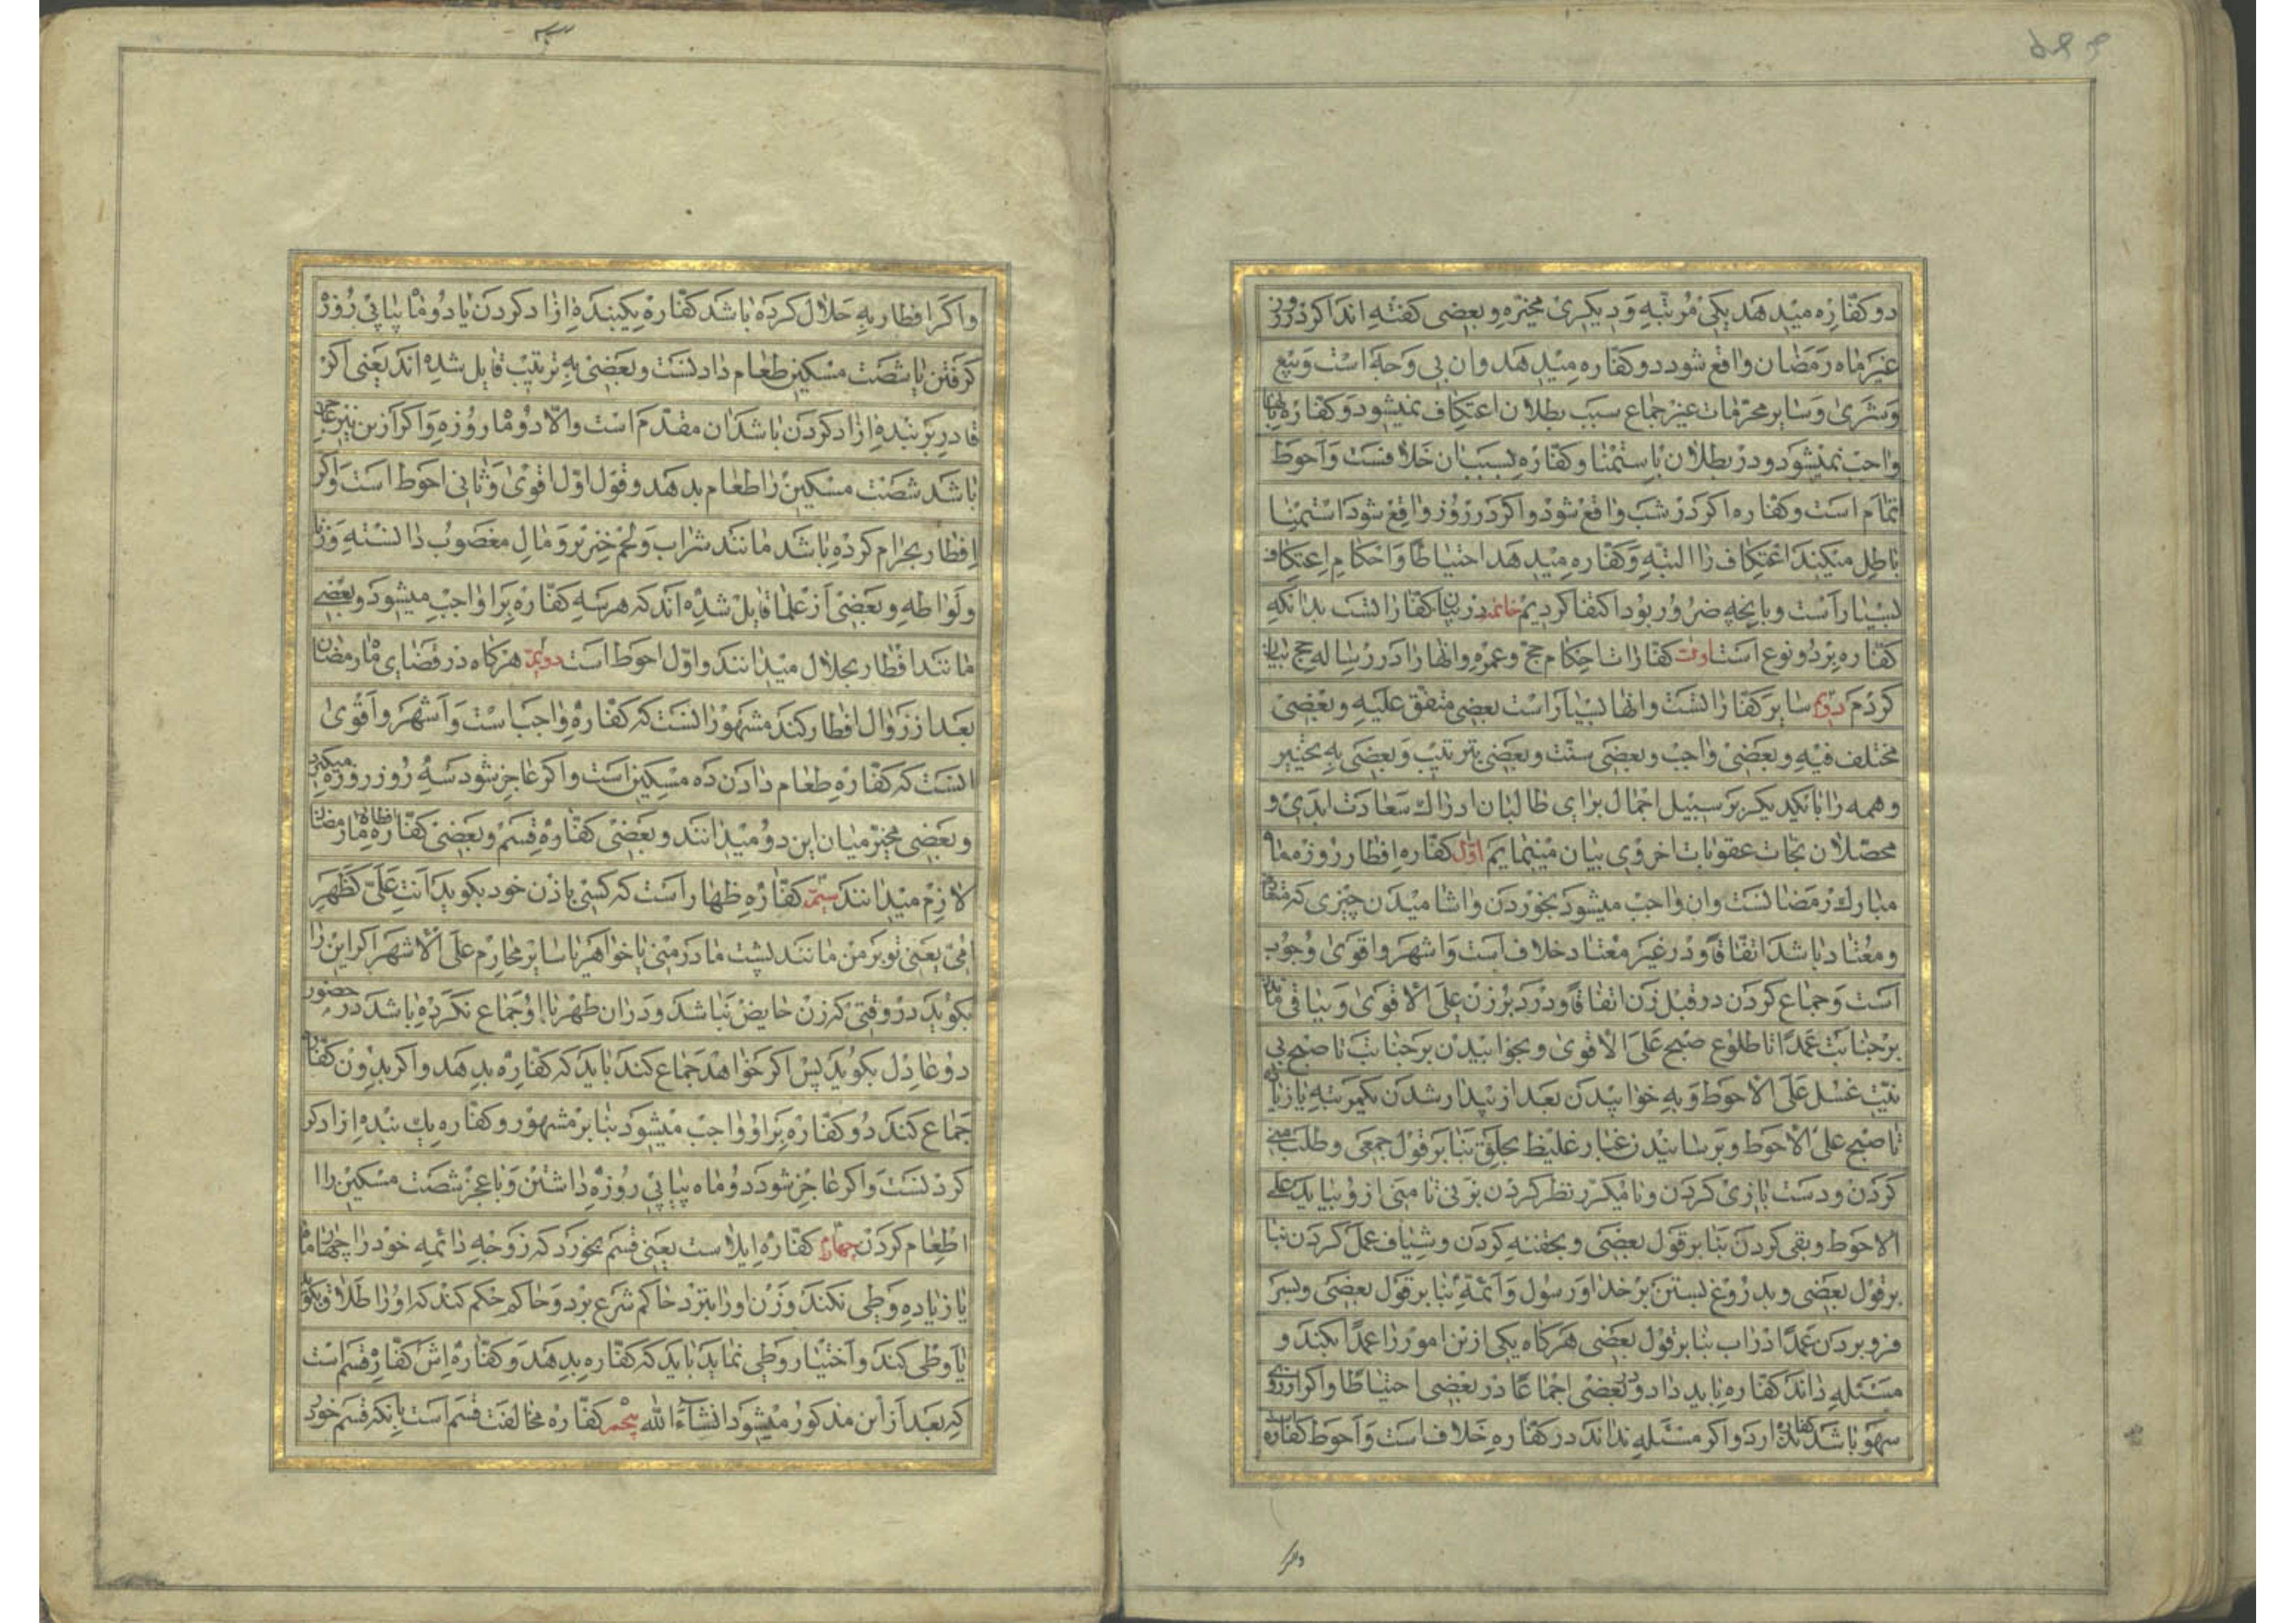 دو کفّاره میدهد یکی مرتبه و دیکری مخیّره و بعضی کفته اند اکر در روز
غیر ماه رمضان واقع شود دو کفّاره میدهد وان بی وجه است و بیع
و شری و سایر محرّمات غیر جماع سبب بطلان اعتکاف نمیشود و کفّاره بانها
واجب نمیشود و در بطلان باستمنا و کفّاره بسبب ان خلافست و احوط
اتمام است و کفّاره اکر در شب واقع شود و اکر در روز واقع شود استمنا
باطل میکند اعتکاف را البته و کفّاره میدهد احتیاطًا و احکام اعتکاف
بسیار است و بانچه ضرور بود اکتفا کردیم خاتمه در بیان کفّاراتست بدانکه
کفّاره بر دو نوع است اوّل کفّارات احکام حج و عمره وانها را در رساله حج بیان
کردم دویم سایر کفّاراتست وانها بسیار است بعضی متفق علیه و بعضی
مختلف فیه و بعضی واجب و بعضی سنّت و بعضی بترتیب و بعضی به تخییر
و همه را بایکدیکر بر سبیل اجمال برای طالبان ادراك سعادت ابدی و
محصّلان نجات عقوبات اخروی بیان مینمایم اوّل کفّاره افطار روزه ماه
مبارك رمضانست وان واجب میشود بخوردن واشامیدن چیزی که متعارف
و معتاد باشد اتفاقًا و در غیر معتاد خلاف است و اشهر و اقوی وجوب
است و جماع کردن در قبل زن اتفاقًا و در دبر زن علی الاقوی و بباقی ماندن
بر جنابت عمدًا تا طلوع صبح علی الاقوی و بخوابیدن بر جنابت تا صبح بی
نیّت غسل علی الاحوط و به خوابیدن بعد از بیدار شدن یکمرتبه یا زیاده
تا صبح علی الاحوط و برسانیدن غبار غلیظ بحلق بنا بر قول جمعی و طلب منی
کردن و دست بازی کردن و یا مکرّر نظر کردن بزنی تا منی از او بیاید علی
الاحوط و بقی کردن بنا بر قول بعضی و بحقنه کردن و شیاف عمل کردن بنا
بر قول بعضی و بدروغ بستن بر خدا و رسول و ائمّه بنا بر قول بعضی و بسر
فرو بردن عمدًا در اب بنا بر قول بعضی هرکاه یکی ازین امور را عمدًا بکند و
مسئله داند کفّاره باید داد در بعضی اجماعًا و در بعضی احتیاطًا و اکر از روی
سهو باشد کفّاره ندارد و اکر مسئله نداند در کفّاره خلاف است و احوط کفّاره است
واکر
واکر افطار به حلال کرده باشد کفّاره یکبنده ازاد کردن یا دو ماه پیاپی روزه
کرفتن یا شصت مسکین طعام دادنست و بعضی به ترتیب قایل شده اند یعنی اکر
قادر بر بنده ازاد کردن باشد ان مقدّم است والّا دو ماه روزه و اکر ازین نیز عاجز
باشد شصت مسکین را طعام بدهد و قول اوّل اقوی و ثانی احوط است و اکر
افطار بحرام کرده باشد مانند شراب و لحم خنزیر و مال مغصوب دانسته و زنا
و لواطه و بعضی از علما قایل شده اند که هر سه کفّاره بر او واجب میشود و بعضی
مانند افطار بحلال میدانند و اوّل احوط است دویم هرکاه در قضای ماه رمضان
بعد از زوال افطار کند مشهور انست که کفّاره واجب است و اشهر و اقوی
انست که کفّاره طعام دادن ده مسکین است و اکر عاجز شود سه روز روزه میکیرد
و بعضی مخیّر میان این دو میدانند و بعضی کفّاره قسم و بعضی کفّاره افطار ماه رمضان
لازم میدانند سیّم کفّاره ظهار است که کسی بازن خود بکوید انتِ علیّ کظهرِ
امّی یعنی تو بر من مانند پشت مادر منی یا خواهر یا سایر محارم علی الاشهر اکر این را
بکوید در وقتی که زن حایض نباشد و در ان طهر با او جماع نکرده باشد در حضور
دو عادل بکوید پس اکر خواهد جماع کند باید که کفّاره بدهد و اکر بدون کفّاره
جماع کند دو کفّاره بر او واجب میشود بنا بر مشهور و کفّاره یك بنده ازاد کر
کردنست و اکر عاجز شود دو ماه پیاپی روزه داشتن و با عجز شصت مسکین را
اطعام کردن چهارم کفّاره ایلاست یعنی قسم بخورد که زوجه دائمه خود را چهار ماه
یا زیاده وطی نکند و زن او را بنزد حاکم شرع برد و حاکم حکم کند که او را طلاق بکوید
یا وطی کند و اختیار وطی نماید باید که کفّاره بدهد و کفّاره اش کفّاره قسم است
که بعد از این مذکور میشود انشاءَ الله پنجم کفّاره مخالفت قسم است بانکه قسم خورد